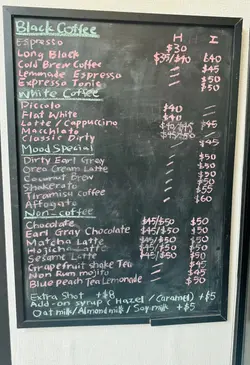 Black Coffee
H I
Espresso $30
Long Black $35/$40 $40
Cold Brew Coffee — $45
Lemonade Espresso — $50
Expresso Tonic — $50
White Coffee
Piccolo $40 —
Flat White $40 —
Latte / Cappuccino $40/$45 $45
Macchiato
Classic Dirty — $45
Mood Special
Dirty Earl Grey — $50
Oreo Cream Latte — $50
Coconut Brew — $50
Shakerato — $50
Tiramisu Coffee — $55
Affogato — $60
Non-coffee
Chocolate $45/$50 $50
Earl Gray Chocolate $45/$50 $50
Matcha Latte $45/$50 $50
Hojicha Latte $45/$50 $50
Sesame Latte $45/$50 $50
Grapefruit shake Tea — $45
Non Rum mojito — $45
Blue Peach Tea Lemonade — $50
Extra Shot +$8
Add-on syrup (Hazel/Caramel) +$5
Oat milk/Almond milk/Soy milk +$5